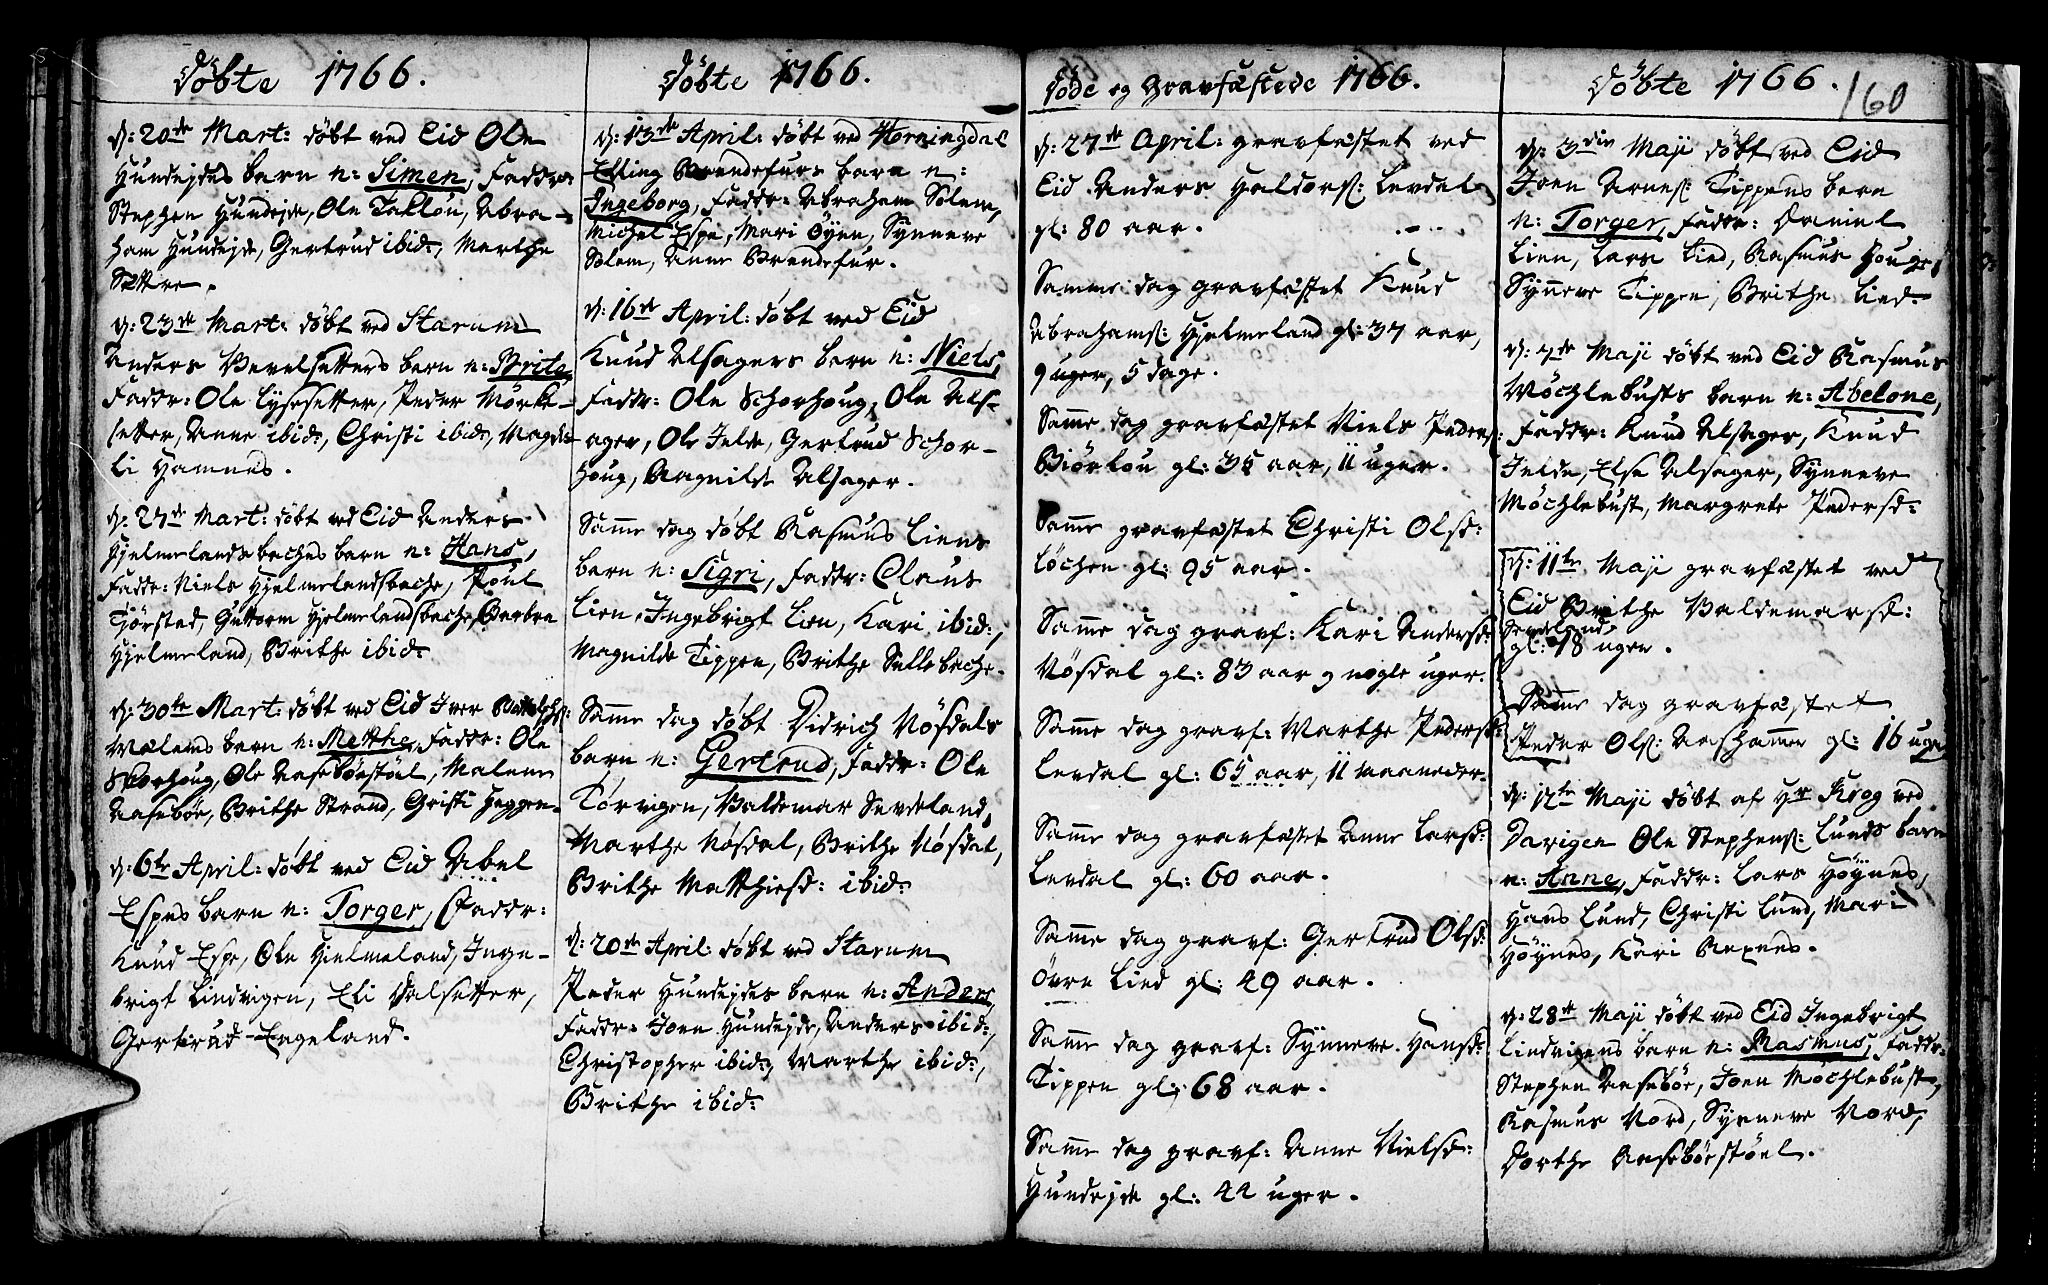 Döbte 1766.
d: 20de Mart: döbt ved Eid Ole
Hundejdes barn n: Simen, Faddr:
Stephen Hundejde, Ole Taklou, Abra-
ham Hundejde, Gertrud ibid:, Marthe
Settre.
d: 23de Mart: döbt ved Starum
Anders Vevelsetters barn n: Brite,
Faddr: Ole Lysesetter, Peder Mörke-
setter, Anne ibid:, Christi ibid:, Magde-
li Hamnes.
d: 27de Mart: döbt ved Eid Anders
Hjelmelandsbaches barn n: Hans,
Faddr: Niels Hjelmelandsbache, Poul
Tjörsted, Guttorm Hjelmelandsbache, Barbra
Hjelmeland, Brithe ibid:
d: 30te Mart: döbt ved Eid Iver
barn n: Metthe, Faddr: Ole
Skorhoug, Ole Aaseböestöel, Malene
Aaseböe, Brithe Strand, Gristi Heggen.
d: 6te April: döbt ved Eid Abel
Espes barn n: Torger, Faddr:
Knud Espe, Ole Hjelmeland, Inge-
brigt Lindvigen, Eli Dalsetter,
Gertrud Engeland.
Döbte 1766.
d: 13de April: döbt ved Horningdal
Elling Brendefurs barn n:
Ingeborg, Faddr: Abraham Solem,
Michel Espe, Mari Öyen, Synneve
Solem, Anne Brendefur.
d: 16de April: döbt ved Eid
Knud Alsagers barn n: Niels,
Faddr: Ole Schorhoug, Ole Als-
ager, Ole Jelde, Gertrud Schor-
houg, Aagnilde Alsager.
Samme dag döbt Rasmus Liens
barn n: Sigri, Faddr: Claus
Lien, Ingebrigt Lien, Kari ibid:,
Magnilde Tippen, Brithe Sellebache.
Samme dag döbt Didrich Nösdals
barn n: Gertrud, Faddr: Ole
Törvigen, Valdemar Sevdeland,
Marthe Nösdal, Brithe Nösdal,
Brithe Matthiesd: ibid:
d: 20de April: döbt ved Starum
Peder Hundejdes barn n: Anders,
Faddr: Joen Hundejde, Anders ibid:,
Christopher ibid:, Marthe ibid:,
Brithe ibid:
Döde og Gravfæstede 1766.
d: 27de April: gravfæstet ved
Eid Anders Haldors: Levdal
gl: 80 aar.
Samme dag gravfæstet Knud
Abrahams: Hjelmeland gl: 37 aar,
9 uger, 5 dage.
Samme dag gravfæstet Niels Peders:
Biörlou gl: 35 aar, 11 uger.
Samme gravfæstet Christi Olsd:
Löchen gl: 95 aar.
Samme dag gravf: Kari Andersd:
Nösdal gl: 83 aar og nogle uger.
Samme dag gravf: Marthe Pedersd:
Levdal gl: 65 aar, 11 maaneder.
Samme dag gravfæstet Anne Larsd:
Levdal gl: 60 aar.
Samme dag gravf: Gertrud Olsd:
Övre Lied gl: 49 aar.
Samme dag gravf: Synneve Hansd:
Tippen gl: 68 aar.
Samme dag gravf: Anne Nielsd:
Hundejde gl: 42 uger.
Döbte 1766.
160
d: 3die Maji döbt ved Eid
Joen Arnes: Tippens barn
n: Torger, Faddr: Daniel
Lien, Lars Lied, Rasmus Houge,
Synneve Tippen, Brithe Lied.
d: 7de Maji döbt ved Eid Rasmus
Möchlebusts barn n: Abelone,
Faddr: Knud Alsager, Knud
Jelde, Else Alsager, Synneve
Möchlebust, Margrete Pedersd:
d: 11te Maji gravfæstet ved
Eid Brithe Valdemarsd:
Sevdeland
gl: 18 uger.
Samme dag gravfæstet
Peder Ols: Aashammer gl: 16 uger
d: 12te Maji döbt af Hr Krog ved
Davigen Ole Stephens: Lunds barn
n: Anne, Faddr: Lars Höynes,
Hans Lund, Christi Lund, Mari
Höynes, Kari Raxnes.
d: 28de Maji döbt ved Eid Ingebrigt
Lindvigens barn n: Rasmus, Faddr:
Stephen Aaseböe, Joen Möchlebust,
Rasmus Nord, Synneve Nord,
Dorthe Aaseböestöel.